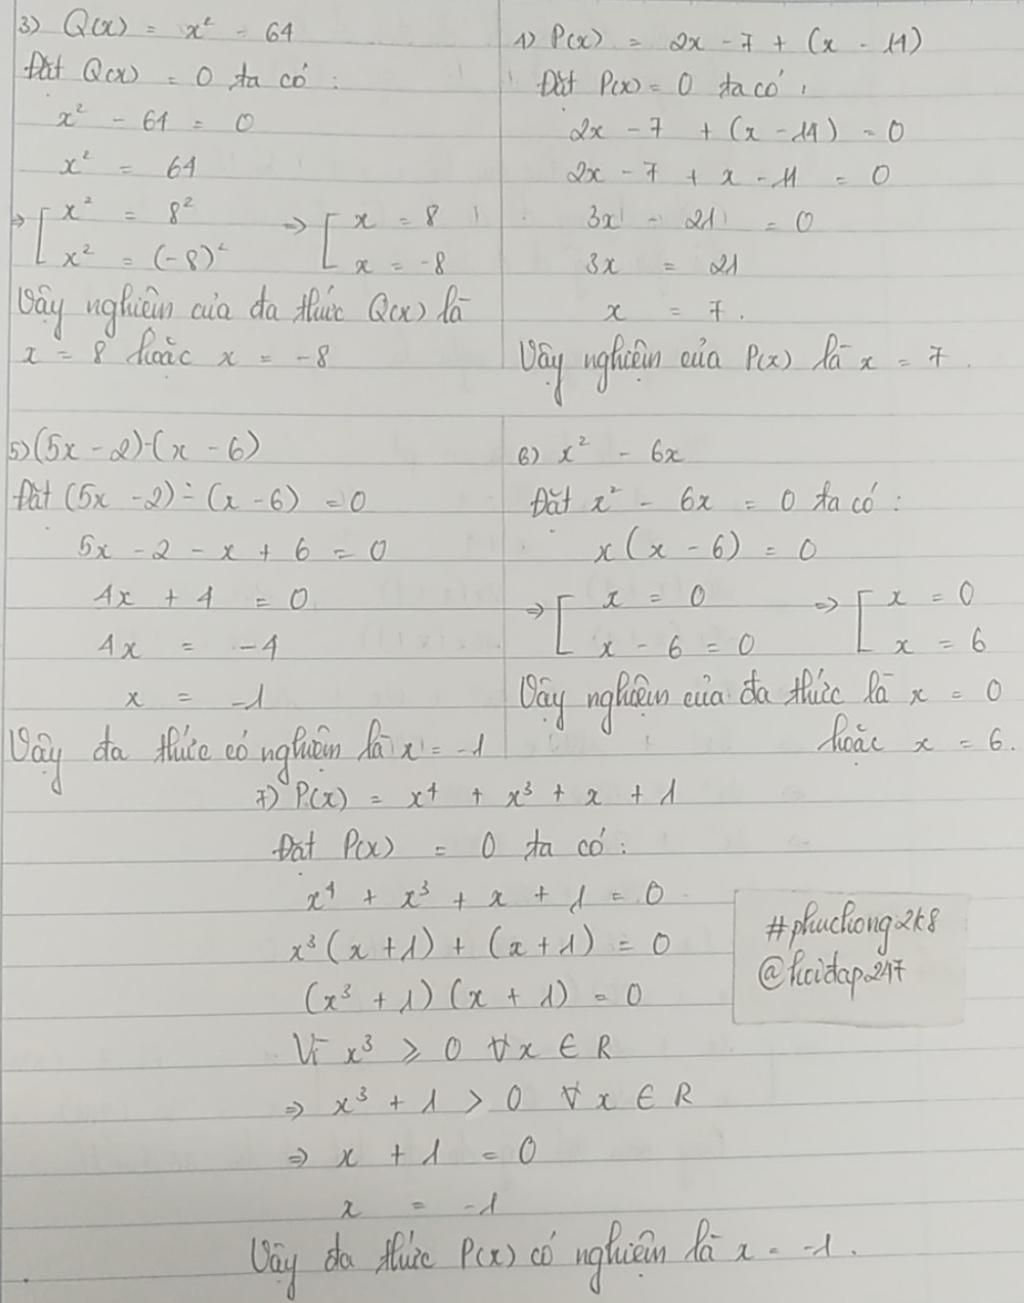 3) Q(x) = x² - 64
Đặt Q(x) = 0 ta có :
x² - 64 = 0
x² = 64
⇒ [ x² = 8² ⇒ [ x = 8
x² = (-8)² x = -8
Vậy nghiệm của đa thức Q(x) là
x = 8 hoặc x = -8
4) P(x) = 2x - 7 + (x - 14)
Đặt P(x) = 0 ta có :
2x - 7 + (x - 14) = 0
2x - 7 + x - 14 = 0
3x - 21 = 0
3x = 21
x = 7.
Vậy nghiệm của P(x) là x = 7.
5) (5x - 2) - (x - 6)
Đặt (5x - 2) - (x - 6) = 0
5x - 2 - x + 6 = 0
4x + 4 = 0
4x = -4
x = -1
Vậy đa thức có nghiệm là x = -1
6) x² - 6x
Đặt x² - 6x = 0 ta có :
x(x - 6) = 0
⇒ [ x = 0 ⇒ [ x = 0
x - 6 = 0 x = 6
Vậy nghiệm của đa thức là x = 0
hoặc x = 6.
7) P(x) = x⁴ + x³ + x + 1
Đặt P(x) = 0 ta có :
x⁴ + x³ + x + 1 = 0
x³(x + 1) + (x + 1) = 0
(x³ + 1)(x + 1) = 0
Vì x³ ⩾ 0 ∀x ∈ R
⇒ x³ + 1 > 0 ∀ x ∈ R
⇒ x + 1 = 0
x = -1
Vậy đa thức P(x) có nghiệm là x = -1.
#phuchong2k8
@hoidap247